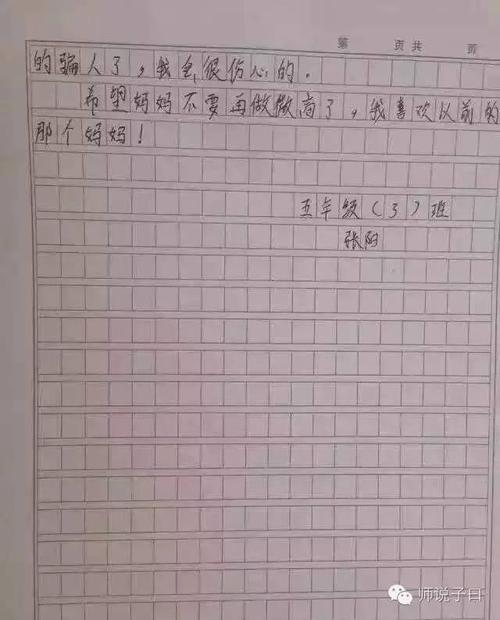 第 页共 页
的骗人了，我会很伤心的．
希望妈妈不要再做微商了，我喜欢以前的
那个妈妈！
五年级（3）班
张阳
师说子曰